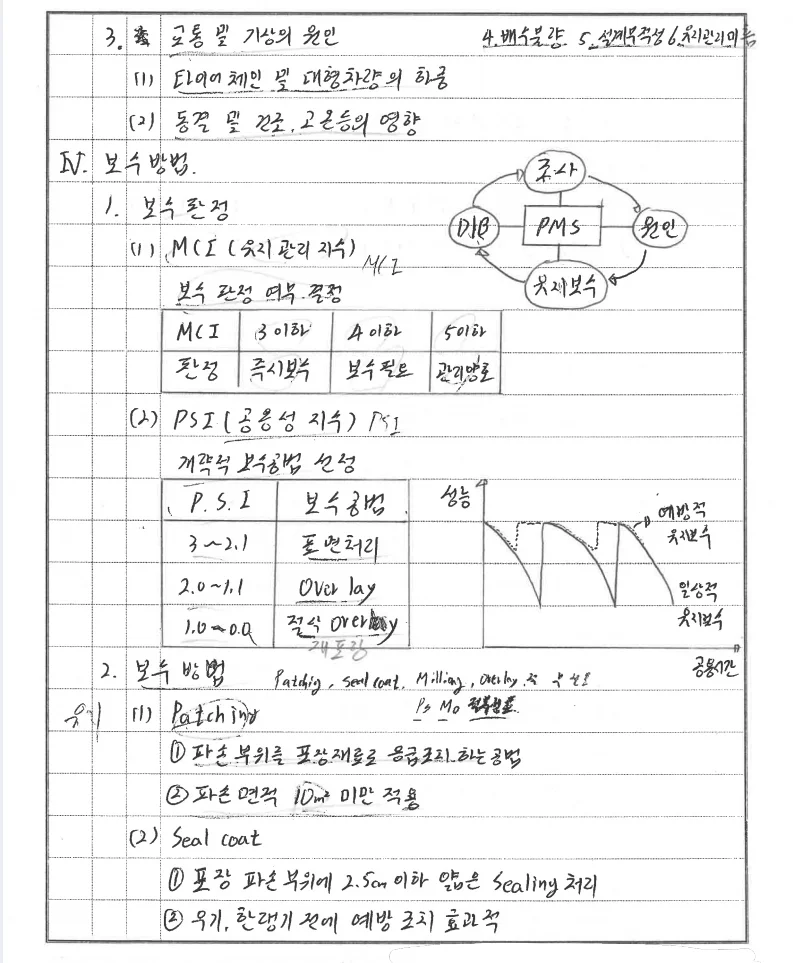 3. 교통 및 기상의 원인
4. 배수불량 5. 설계부적성 6. 유지관리미흡
(1) 타이어체인 및 대형차량의 하중
(2) 동결 및 건조, 고온등의 영향
Ⅳ. 보수방법.
1. 보수판정
조사
D/B PMS 원인
유지보수
(1) MCI (유지관리지수)
MCI
보수 판정 여부 결정
MCI 3이하 4이하 5이하
판정 즉시보수 보수필요 관리양호
(2) PSI (공용성 지수) PSI
개략적 보수공법 선정
P. S. I 보수공법
3 ~ 2.1 표면처리
2.0 ~ 1.1 Over lay
1.0 ~ 0.0 절삭 overlay
재포장
성능
예방적
유지보수
일상적
유지보수
공용시간
2. 보수 방법
Patchig, seal coat, Milling, overlay,
Ps Mo
유지
(1) Patching
① 파손 부위를 포장재료로 응급조치 하는 공법
② 파손면적 10m² 미만 적용
(2) Seal coat
① 포장 파손 부위에 2.5cm 이하 얇은 Sealing 처리
② 우기, 한랭기 전에 예방 조치 효과적